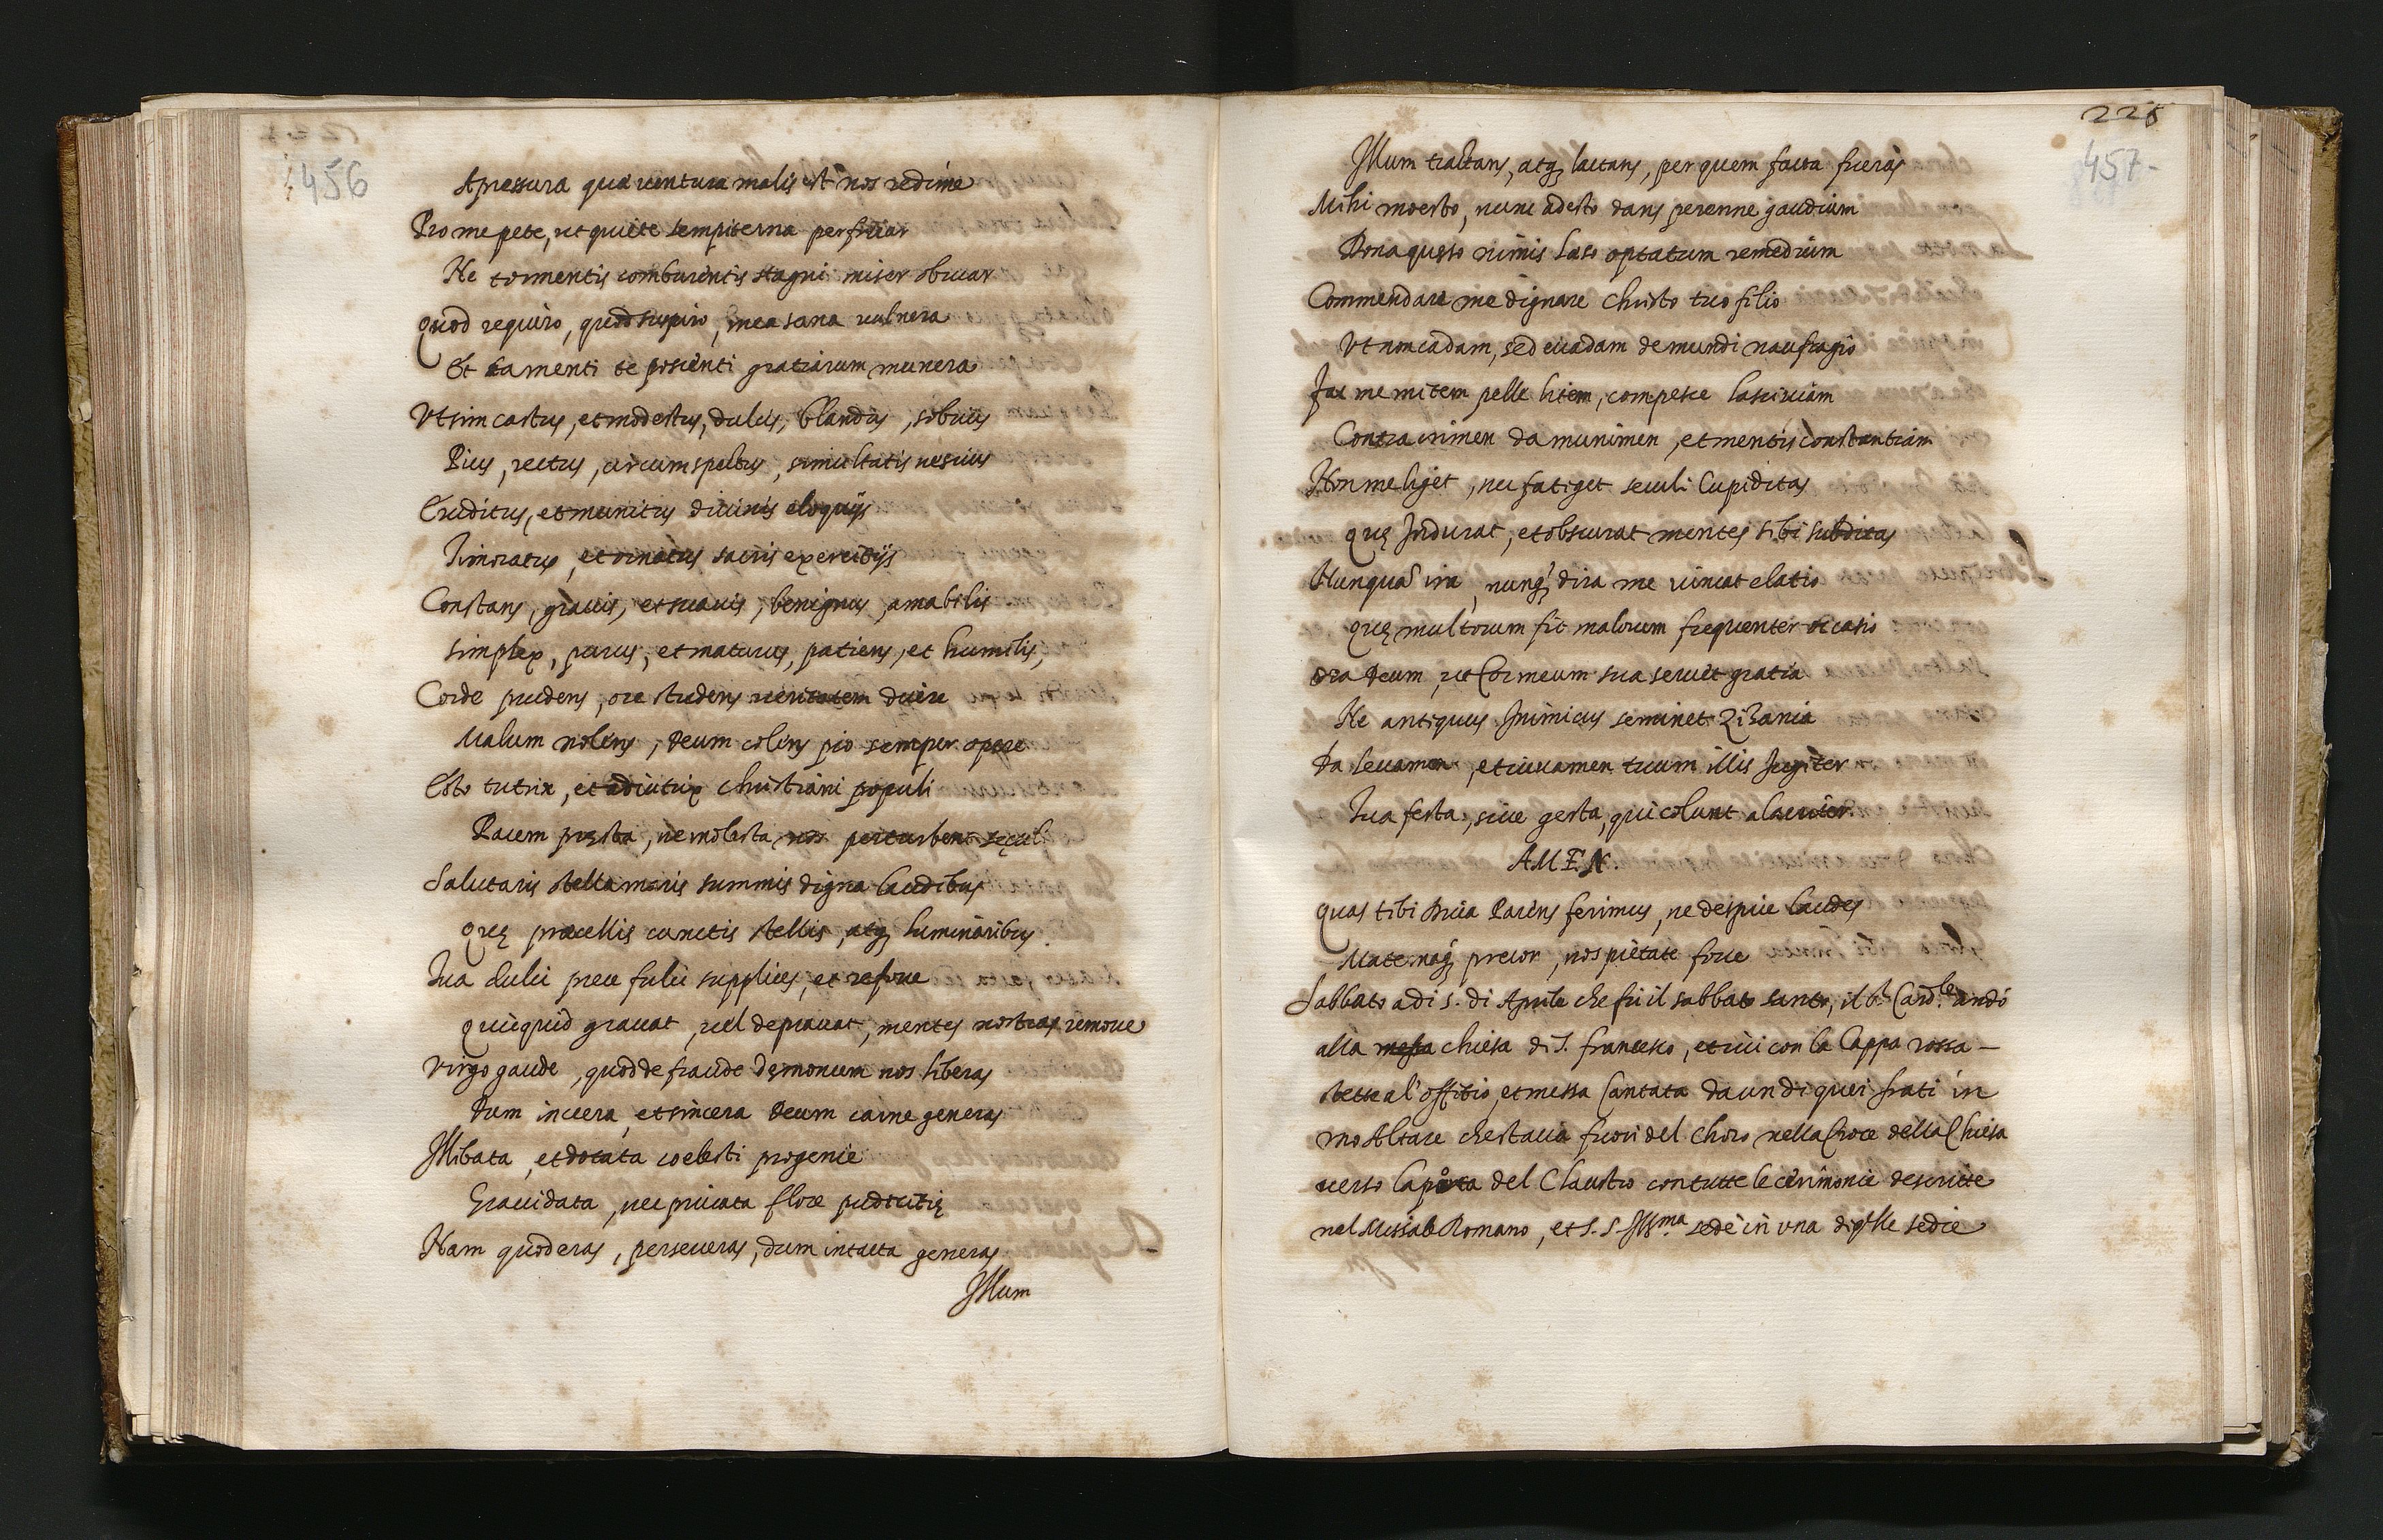 456
A pressura quae ventura malis est nos redime
Pro me pete, ut quiete sempiterna perfruar
Ne tormentis comburentis stagni miser obruar
Quod requiro, quod suspiro, mea sana vulnera
Et da menti te poscenti gratiarum munera
Ut sim castus, et modestus, dulcis, blandus, sobrius
Pius, rectus, circumspectus, simultatis nescius
Eruditus, et munitus divinis eloquijs
Timoratus, et ornatus sacris exercitijs
Constans, gravis, et suavis, benignus, amabilis
Simplex, purus, et maturus, patiens, et humilis,
Corde prudens, ore studens veritatem dicere
Malum nolens, Deum colens pio semper opere
Esto tutrix, et adiutrix Christiani populi
Pacem pręsta, ne molesta nos perturbent sęculi
Salutaris stella maris summis digna laudibus
Quę praecellis cunctis stellis, atq; luminaribus.
Tua dulci prece fulci supplices, et refove
Quicquid gravat, vel depravat, mentes nostras remove
Virgo gaude, quod de fraude dęmonum nos liberas
Dum in vera, et sincera Deum carne generas
Illibata, et dotata coelesti progenie
Gravidata, nec privata flore pudicitię
Nam quod eras, perseveras, dum intacta generas
Illum
228
457-
Illum tractans, atq; lactans, per quem facta fueras
Mihi moesto, nunc adesto dans perenne gaudium
Dona quęso nimis laeso optatum remedium
Commendare me dignare Christo tuo filio
Ut non cadam, sed evadam de mundi naufragio
Fac me mitem pelle litem, compesce lasciviam
Contra crimen da munimen, et mentis constantiam
Non me liget, nec fatiget seculi Cupiditas
quę Indurat, et obscurat mentes sibi subditas
Nunquā ira, nunq; dira me vincat elatio
quę multorum fit malorum frequenter occasio
Ora Deum, ut Cor meum sua servet gratia
Ne antiquus Inimicus seminet Zizania
Da levamen, et iuvamen tuum illis Iugiter
Tua festa, sive gesta, qui colunt alacriter
AMEN.
Quas tibi Diva Parens ferimus, ne despice laudes
Maternaq; precor, nos pietate fove
Sabbato adi 5. di Aprile che fu il sabbato santo, il b. Card.le andò
alla messa chiesa di S. francesco, et ivi con la Cappa rossa –
stette al' offitio, et messa Cantata da un di quei frati in
mo Altare che stava fuori del Choro nella Croce della Chiesa
verso la porta del Claustro con tutte le cerimonie descritte
nel Missale Romano, et S. S. Ill.ma sedè in una di q̃lle sedie